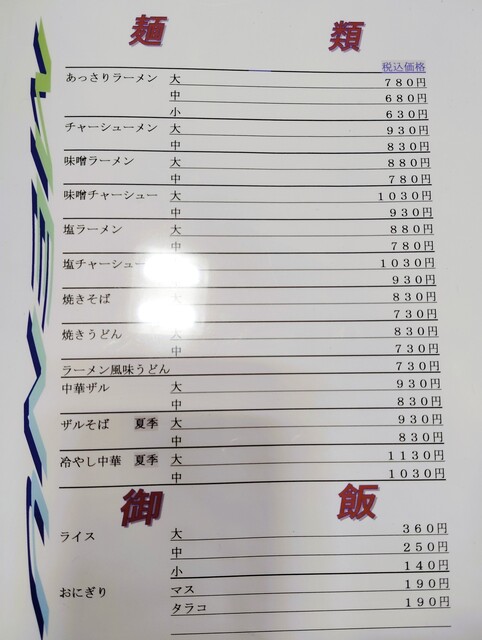 麺 類
税込価格
あっさりラーメン 大 780円
中 680円
小 630円
チャーシューメン 大 930円
中 830円
味噌ラーメン 大 880円
中 780円
味噌チャーシュー 大 1030円
中 930円
塩ラーメン 大 880円
中 780円
塩チャーシュー 1030円
930円
焼きそば 830円
730円
焼きうどん 大 830円
中 730円
ラーメン風味うどん 730円
中華ザル 大 930円
中 830円
ザルそば 夏季 大 930円
中 830円
冷やし中華 夏季 大 1130円
中 1030円
御 飯
ライス 大 360円
中 250円
小 140円
おにぎり マス 190円
タラコ 190円